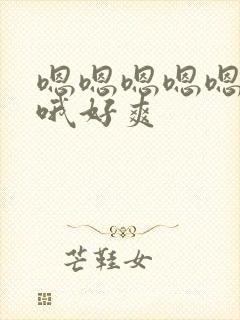 嗯嗯嗯嗯嗯
哦好爽
芒鞋女